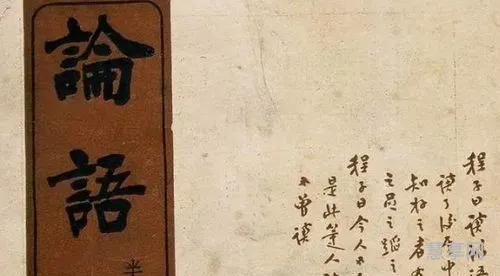 論語
半
程子曰讀論語
讀了後其中
知好之者有
之足之蹈之
程子曰今人不
是此等人
不曾讀